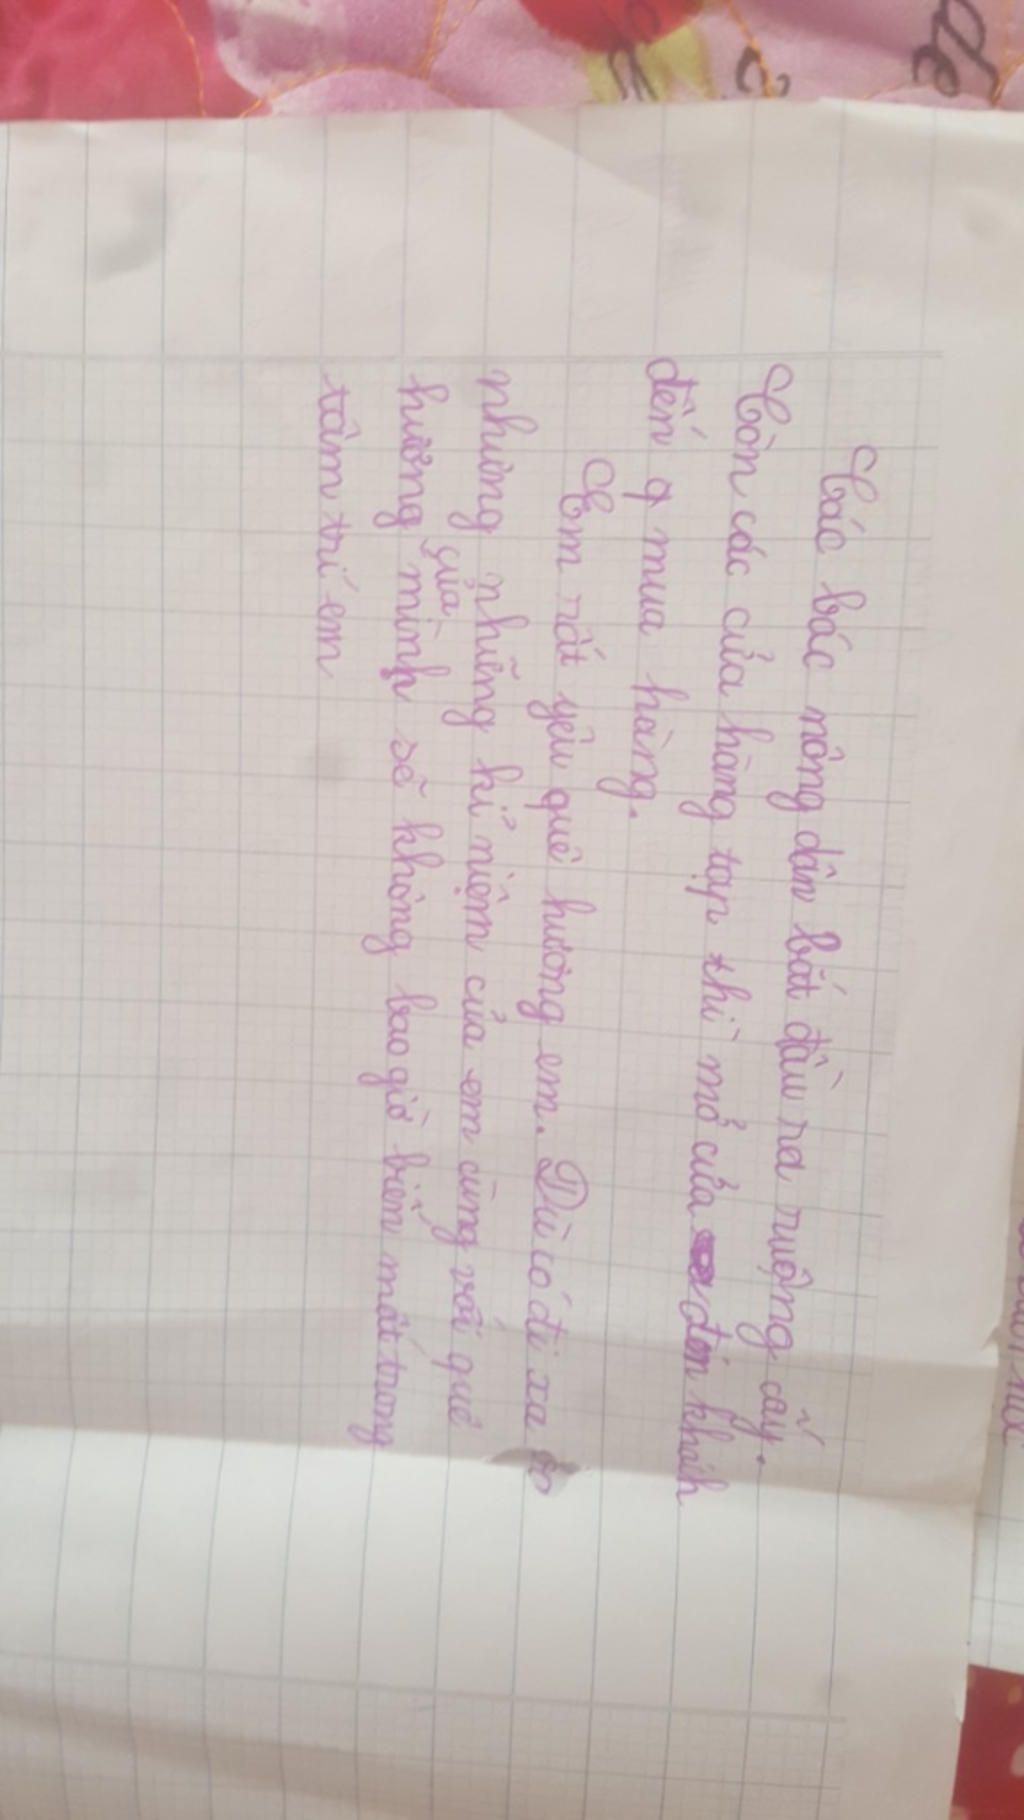 Các bác nông dân bắt đầu ra ruộng cấy.
Còn các cửa hàng tạp thì mở cửa đón khách
đến q mua hàng.
Em rất yêu quê hương em. Dù có đi xa
nhưng những kỉ niệm của em cùng với quê
hương của mình sẽ không bao giờ biến mất trong
tâm trí em